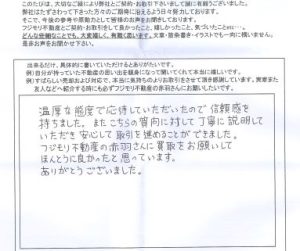 このたびは、大切なご縁により弊社とご契約・お取引下さいまして誠に有難うございました。
弊社はたずさわって下さった方々のご期待に沿えるよう日々努力しております。
そこで、今後の参考や原動力として皆様のお声をお聞きしております。
フジモリ不動産とご契約・お取引をして良かったこと、嬉しかったこと、気づいたこと…
どんな些細なことでも、大変嬉しく、有難く思います。文章・箇条書き・イラストでも一向に構いません。
是非お声をお聞かせ下さい。
出来るだけ、具体的に書いていただけるとありがたいです。
例）自分が持っていた不動産の思い出を親身になって聞いてくれて本当に嬉しいです。
例）すばらしい売却および対応で、本当に気持ちのよりお取引させて頂き感謝しています。実家また
友人などへ紹介する時にも必ずフジモリ不動産の赤羽さんにお願いしたいです。
温厚な態度で応待していただいたので信頼感を
持ちました。またこちらの質問に対して丁寧に説明して
いただき安心して取引を進めることができました。
フジモリ不動産の赤羽さんに買取をお願いして
ほんとうに良かったと思っています。
ありがとうございました。